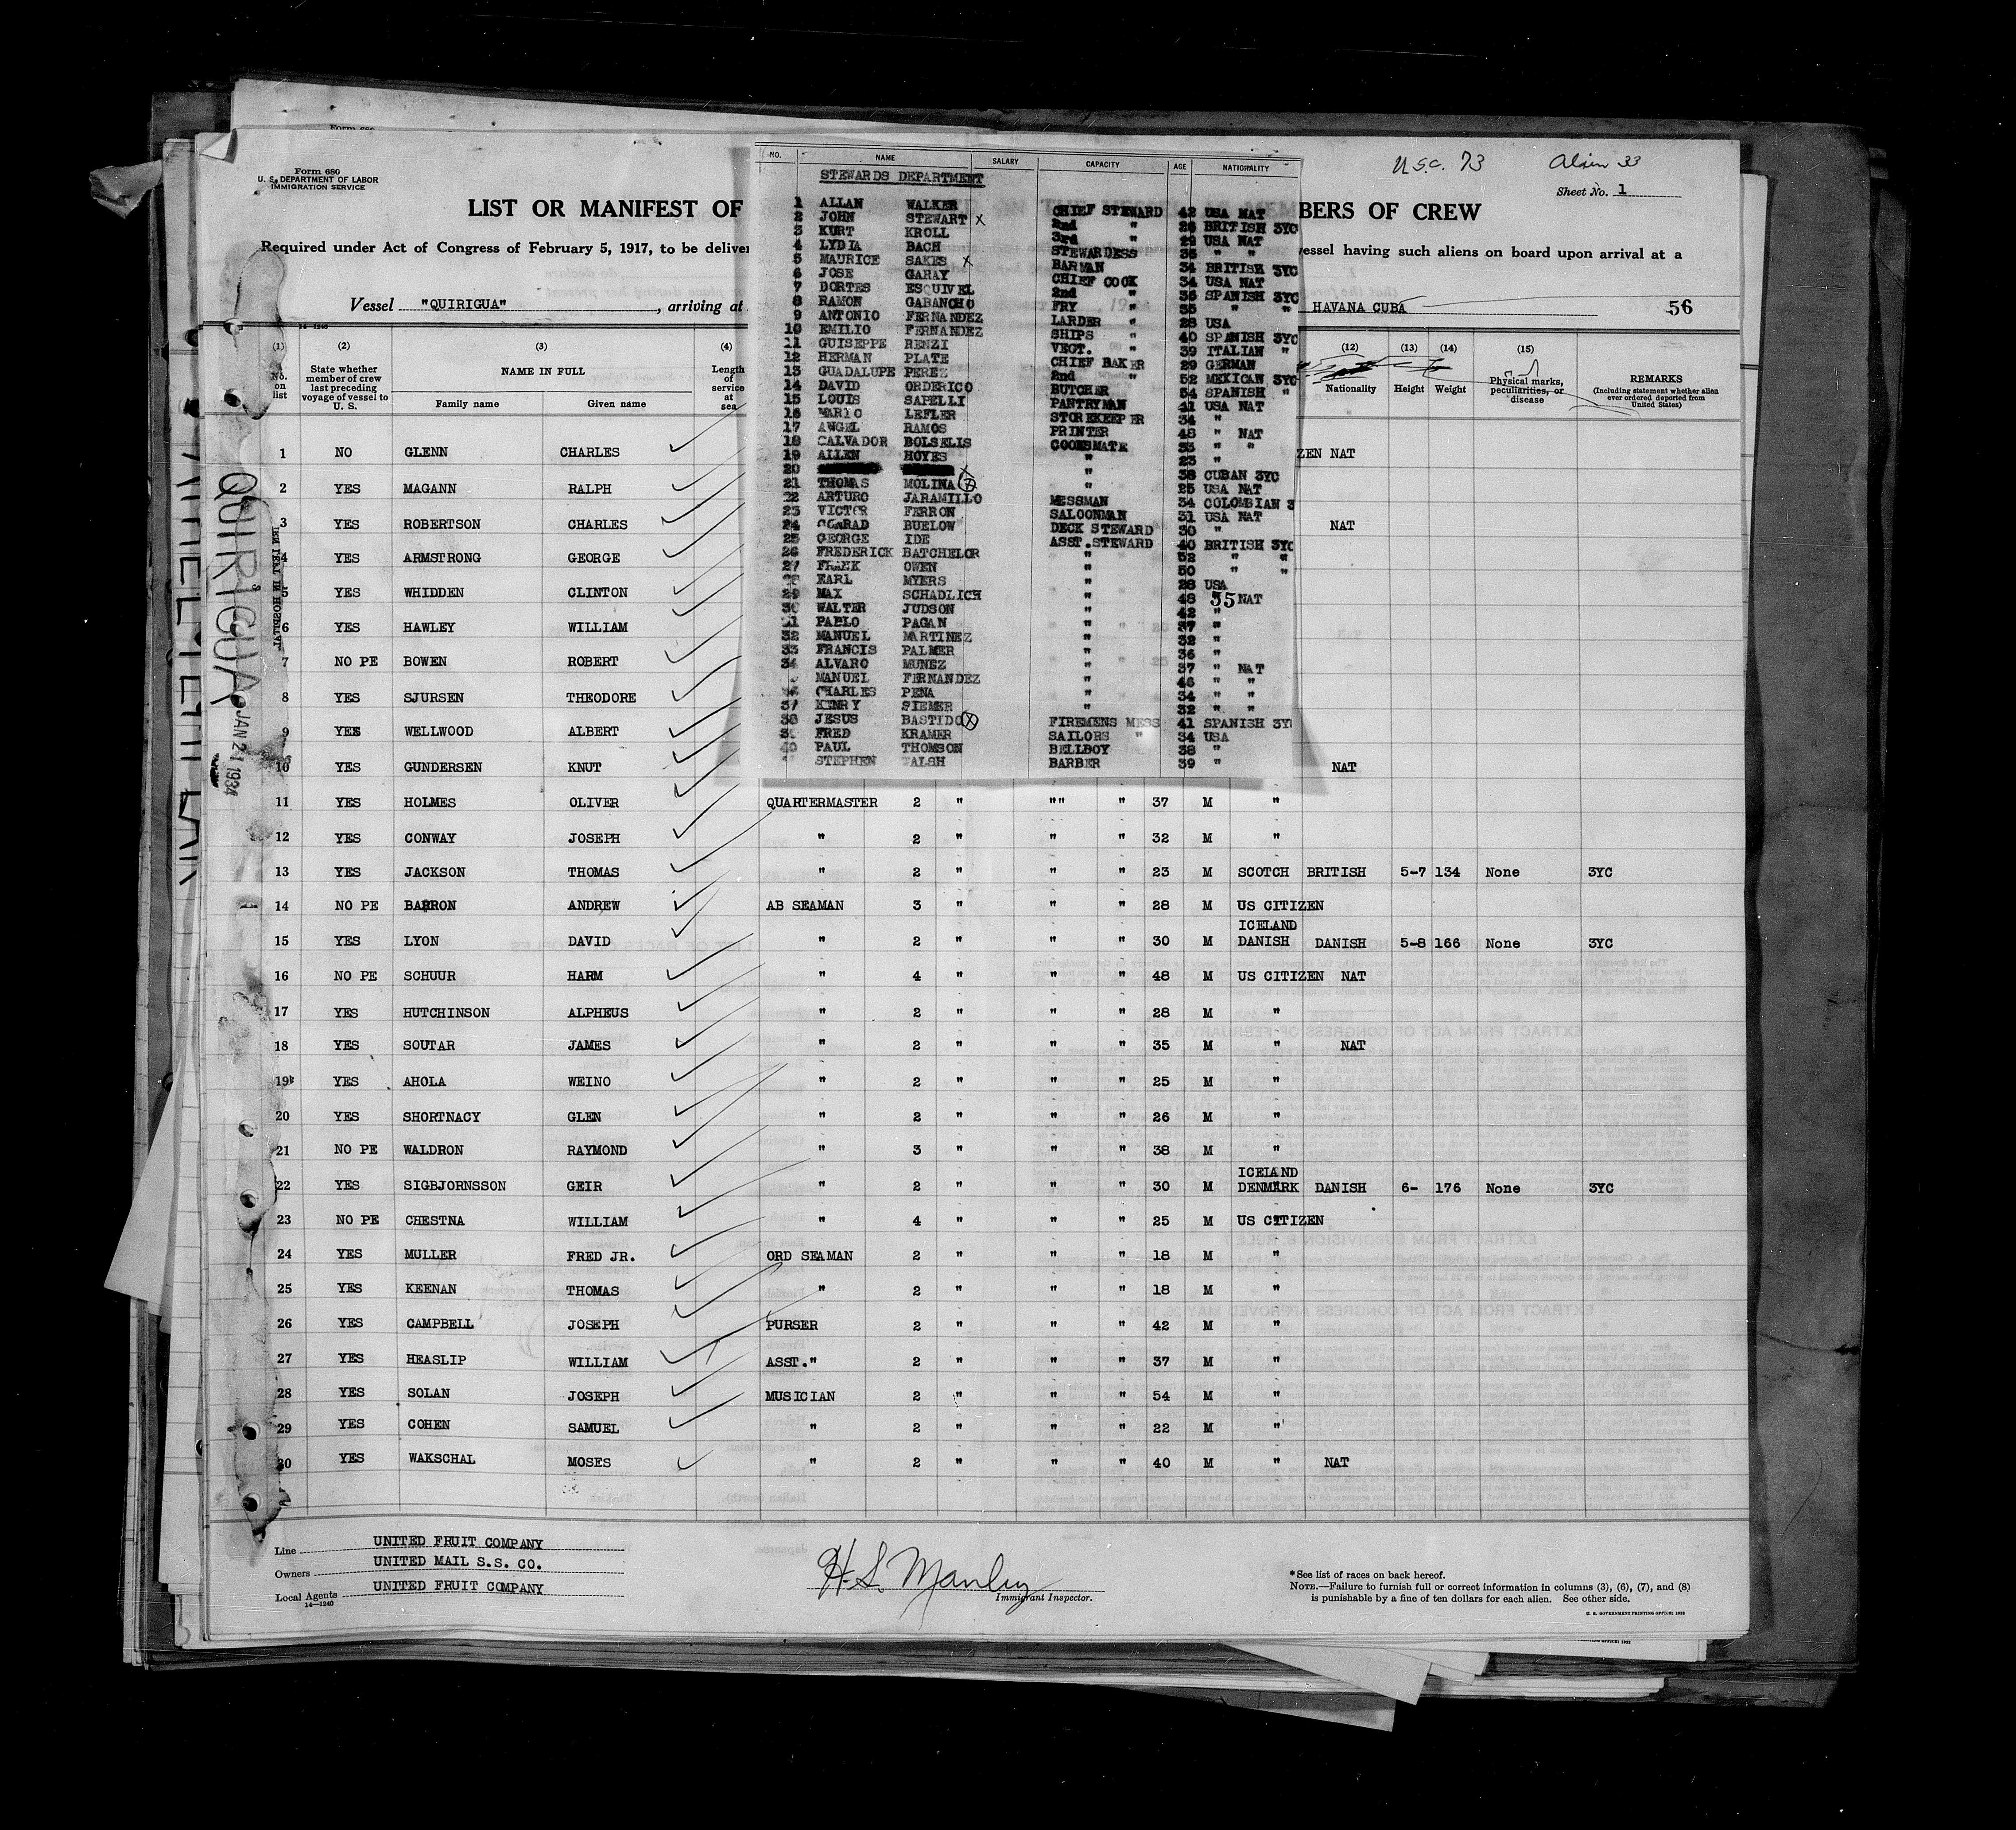 Form 680
U. S. DEPARTMENT OF LABOR
IMMIGRATION SERVICE
U.S.C. 73
Alien 33
Sheet No. 1
LIST OR MANIFEST OF
BERS OF CREW
Required under Act of Congress of February 5, 1917, to be deliver
essel having such aliens on board upon arrival at a
Vessel "QUIRIGUA", arriving at
HAVANA CUBA
56
NO. NAME SALARY CAPACITY AGE NATIONALITY
STEWARDS DEPARTMENT
1 ALLAN WALKER CHIEF STEWARD 42 USA NAT
2 JOHN STEWART X 2nd " 26 BRITISH 3YC
3 KURT KROLL 3rd " 29 USA NAT
4 LYDIA BACH STEWARDESS 35 " "
5 MAURICE SAKES X BARMAN 34 BRITISH 3YC
6 JOSE GARAY CHIEF COOK 34 USA NAT
7 DORTES ESQUIVEL 2nd " 36 SPANISH 3YC
8 RAMON GABANCHO FRY " 35 " "
9 ANTONIO FERNANDEZ LARDER " 28 USA
10 EMILIO FERNANDEZ SHIPS " 40 SPANISH 3YC
11 GUISEPPE RENZI VEGT. " 39 ITALIAN "
12 HERMAN PLATE CHIEF BAKER 29 GERMAN
13 GUADALUPE PEREZ 2nd " 52 MEXICAN 3YC
14 DAVID ORDERICO BUTCHER 54 SPANISH "
15 LOUIS SAPELLI PANTRYMAN 41 USA NAT
16 MARIO LEFLER STOREKEEPER 34 "
17 ANGEL RAMOS PRINTER 48 " NAT
18 CALVADOR BOLSELIS COOKSMATE 33 " "
19 ALLEN HOYES " 23 "
20 X " 38 CUBAN 3YC
21 THOMAS MOLINA " 25 USA NAT
22 ARTURO JARAMILLO MESSMAN 34 COLOMBIAN 3
23 VICTOR FERRON SALOONMAN 31 USA NAT
24 CONRAD BUELOW DECK STEWARD 30 "
25 GEORGE IDE ASST.STEWARD 40 BRITISH 3YC
26 FREDERICK BATCHELOR " 52 " "
27 FRANK OWEN " 50 " "
28 EARL MYERS " 28 USA
29 MAX SCHADLICH " 48 " NAT
55
30 WALTER JUDSON " 42 "
31 PABLO PAGAN " 37 "
32 MANUEL MARTINEZ " 32 "
33 FRANCIS PALMER " 36 "
34 ALVARO MUNEZ " 37 " NAT
MANUEL FERNANDEZ " 46 " "
36 CHARLES PENA " 34 " "
37 HENRY SIEMER " 32 " "
38 JESUS BASTIDO X FIREMENS MESS 41 SPANISH 3Y
FRED KRAMER SAILORS " 34 USA
40 PAUL THOMSON BELLBOY 38 "
STEPHEN WALSH BARBER 39 "
14—1240
(1) (2) (3) (4) (12) (13) (14) (15)
No. on list
State whether member of crew last preceding voyage of vessel to U. S.
NAME IN FULL
Family name Given name
Length of service at sea
Nationality Height Weight
Physical marks, peculiarities, or disease
REMARKS
(Including statement whether alien ever ordered deported from United States)
1 NO GLENN CHARLES ZEN NAT
2 YES MAGANN RALPH
3 YES ROBERTSON CHARLES NAT
4 YES ARMSTRONG GEORGE
5 YES WHIDDEN CLINTON
6 YES HAWLEY WILLIAM
7 NO PE BOWEN ROBERT
8 YES SJURSEN THEODORE
9 YES WELLWOOD ALBERT
10 YES GUNDERSEN KNUT NAT
11 YES HOLMES OLIVER QUARTERMASTER 2 " "" " 37 M "
12 YES CONWAY JOSEPH " 2 " " " 32 M "
13 YES JACKSON THOMAS " 2 " " " 23 M SCOTCH BRITISH 5-7 134 None 3YC
14 NO PE BARRON ANDREW AB SEAMAN 3 " " " 28 M US CITIZEN
15 YES LYON DAVID " 2 " " " 30 M ICELAND DANISH DANISH 5-8 166 None 3YC
16 NO PE SCHUUR HARM " 4 " " " 48 M US CITIZEN NAT
17 YES HUTCHINSON ALPHEUS " 2 " " " 28 M "
18 YES SOUTAR JAMES " 2 " " " 35 M " NAT
19 YES AHOLA WEINO " 2 " " " 25 M "
20 YES SHORTNACY GLEN " 2 " " " 26 M "
21 NO PE WALDRON RAYMOND " 3 " " " 38 M "
22 YES SIGBJORNSSON GEIR " 2 " " " 30 M ICELAND DENMARK DANISH 6- 176 None 3YC
23 NO PE CHESTNA WILLIAM " 4 " " " 25 M US CITIZEN
24 YES MULLER FRED JR. ORD SEAMAN 2 " " " 18 M "
25 YES KEENAN THOMAS " 2 " " " 18 M "
26 YES CAMPBELL JOSEPH PURSER 2 " " " 42 M "
27 YES HEASLIP WILLIAM ASST." 2 " " " 37 M "
28 YES SOLAN JOSEPH MUSICIAN 2 " " " 54 M "
29 YES COHEN SAMUEL " 2 " " " 22 M "
30 YES WAKSCHAL MOSES " 2 " " " 40 M " NAT
QUIRIGUA
JAN 21 1934
Line UNITED FRUIT COMPANY
Owners UNITED MAIL S.S. CO.
Local Agents UNITED FRUIT COMPANY
14—1240
H. S. Manley
Immigrant Inspector.
*See list of races on back hereof.
NOTE.—Failure to furnish full or correct information in columns (3), (6), (7), and (8)
is punishable by a fine of ten dollars for each alien. See other side.
U. S. GOVERNMENT PRINTING OFFICE: 1932